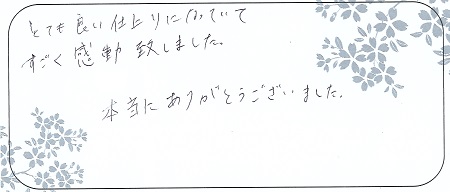 とても良い仕上りになっていて
すごく感動致しました。
本当にありがとうございました。